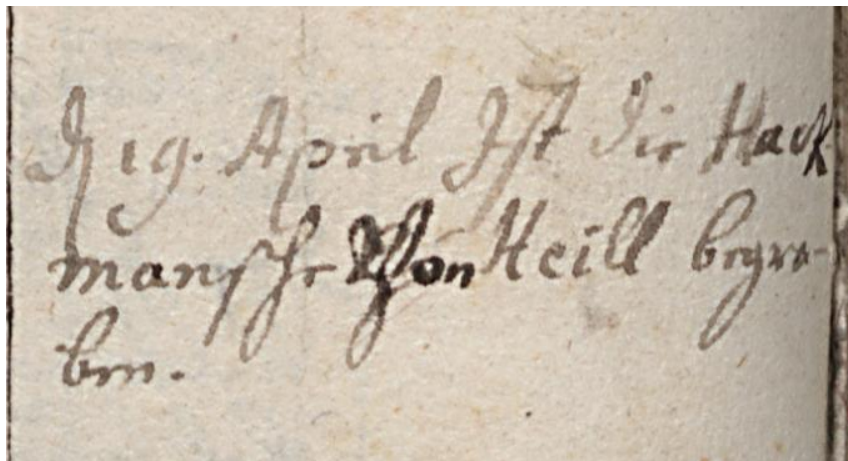 d 19. April Ist die Hack
mansche Von Heill begra-
ben.